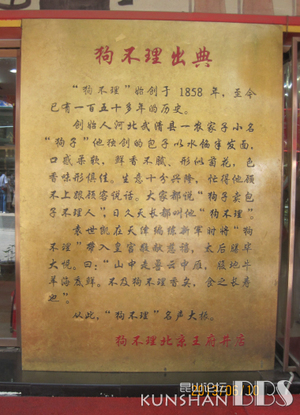 狗不理出典
“狗不理”始创于1858年，至今
已有一百五十多年的历史。
创始人河北武清县一农家子小名
“狗子”他独创的包子以水馅半发面，
口感柔软，鲜香不腻、形似菊花，色
香味形俱佳。生意十分兴隆，忙得他顾
不上跟顾客说话。大家都说“狗子卖包
子不理人”，日久天长都叫他“狗不理”。
袁世凯在天津编练新军时将“狗
不理”带入皇宫敬献慈禧，太后膳毕
大悦，曰：“山中走兽云中雁，腹地牛
羊海底鲜。不及狗不理香矣，食之长寿
也”。
从此，“狗不理”名声大振。
狗不理北京王府井店
昆山论坛
KUNSHAN BBS